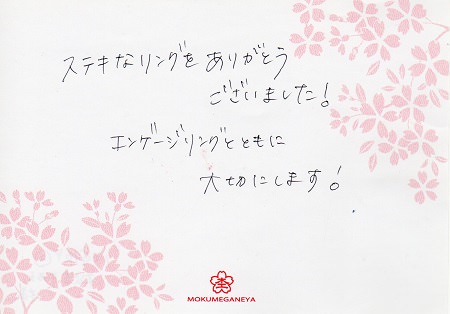 ステキなリングをありがとう
ございました!
エンゲージリングとともに
大切にします!
MOKUMEGANEYA